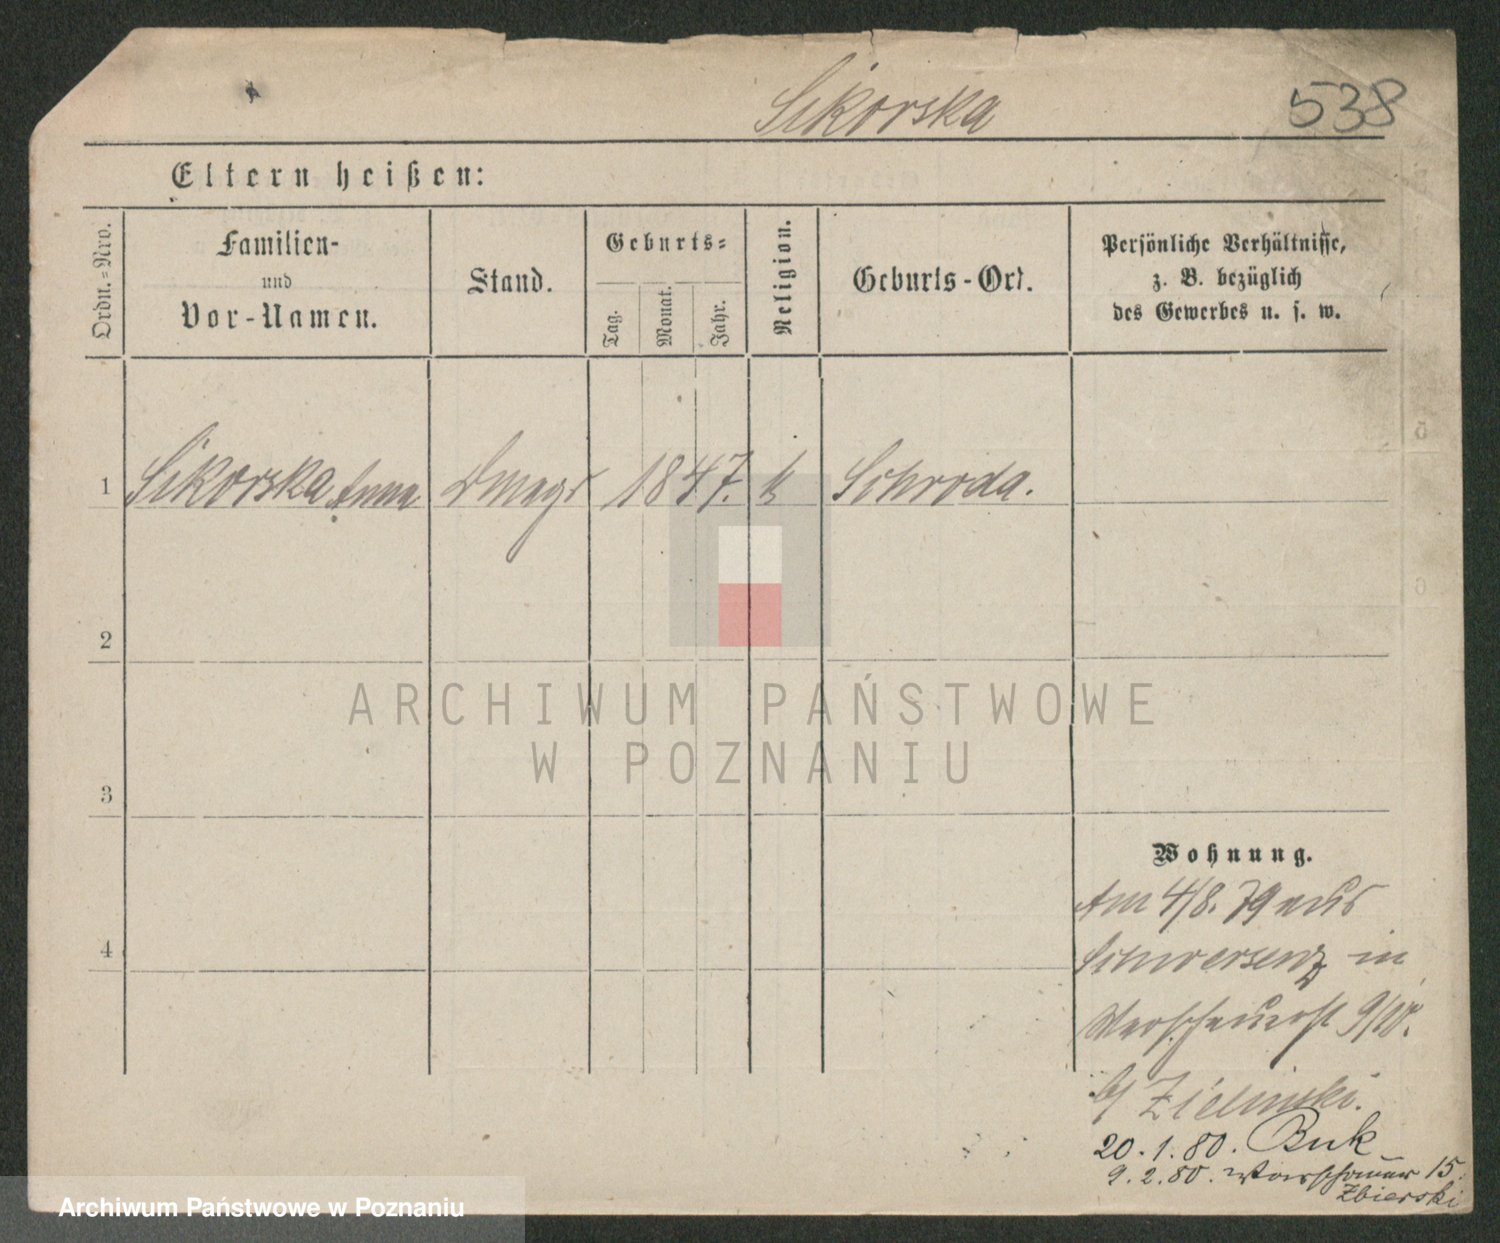 Sikorska
538
Eltern heißen:
Ordn.-Nro.
Familien-
und
Vor-Namen.
Stand.
Geburts-
Tag.
Monat.
Jahr.
Religion.
Geburts-Ort.
Persönliche Verhältnisse,
z. B. bezüglich
des Gewerbes u. s. w.
1 Sikorska Anna 1847. k Schroda.
2
ARCHIWUM PAŃSTWOWE
W POZNANIU
3
Wohnung.
Am 4/8. 79 aus
4
Schwersenz in
9/10.
b/ Zielinski.
20.1.80. Buk
9.2.80. Warschauer 15.
Zbierski
Archiwum Państwowe w Poznaniu